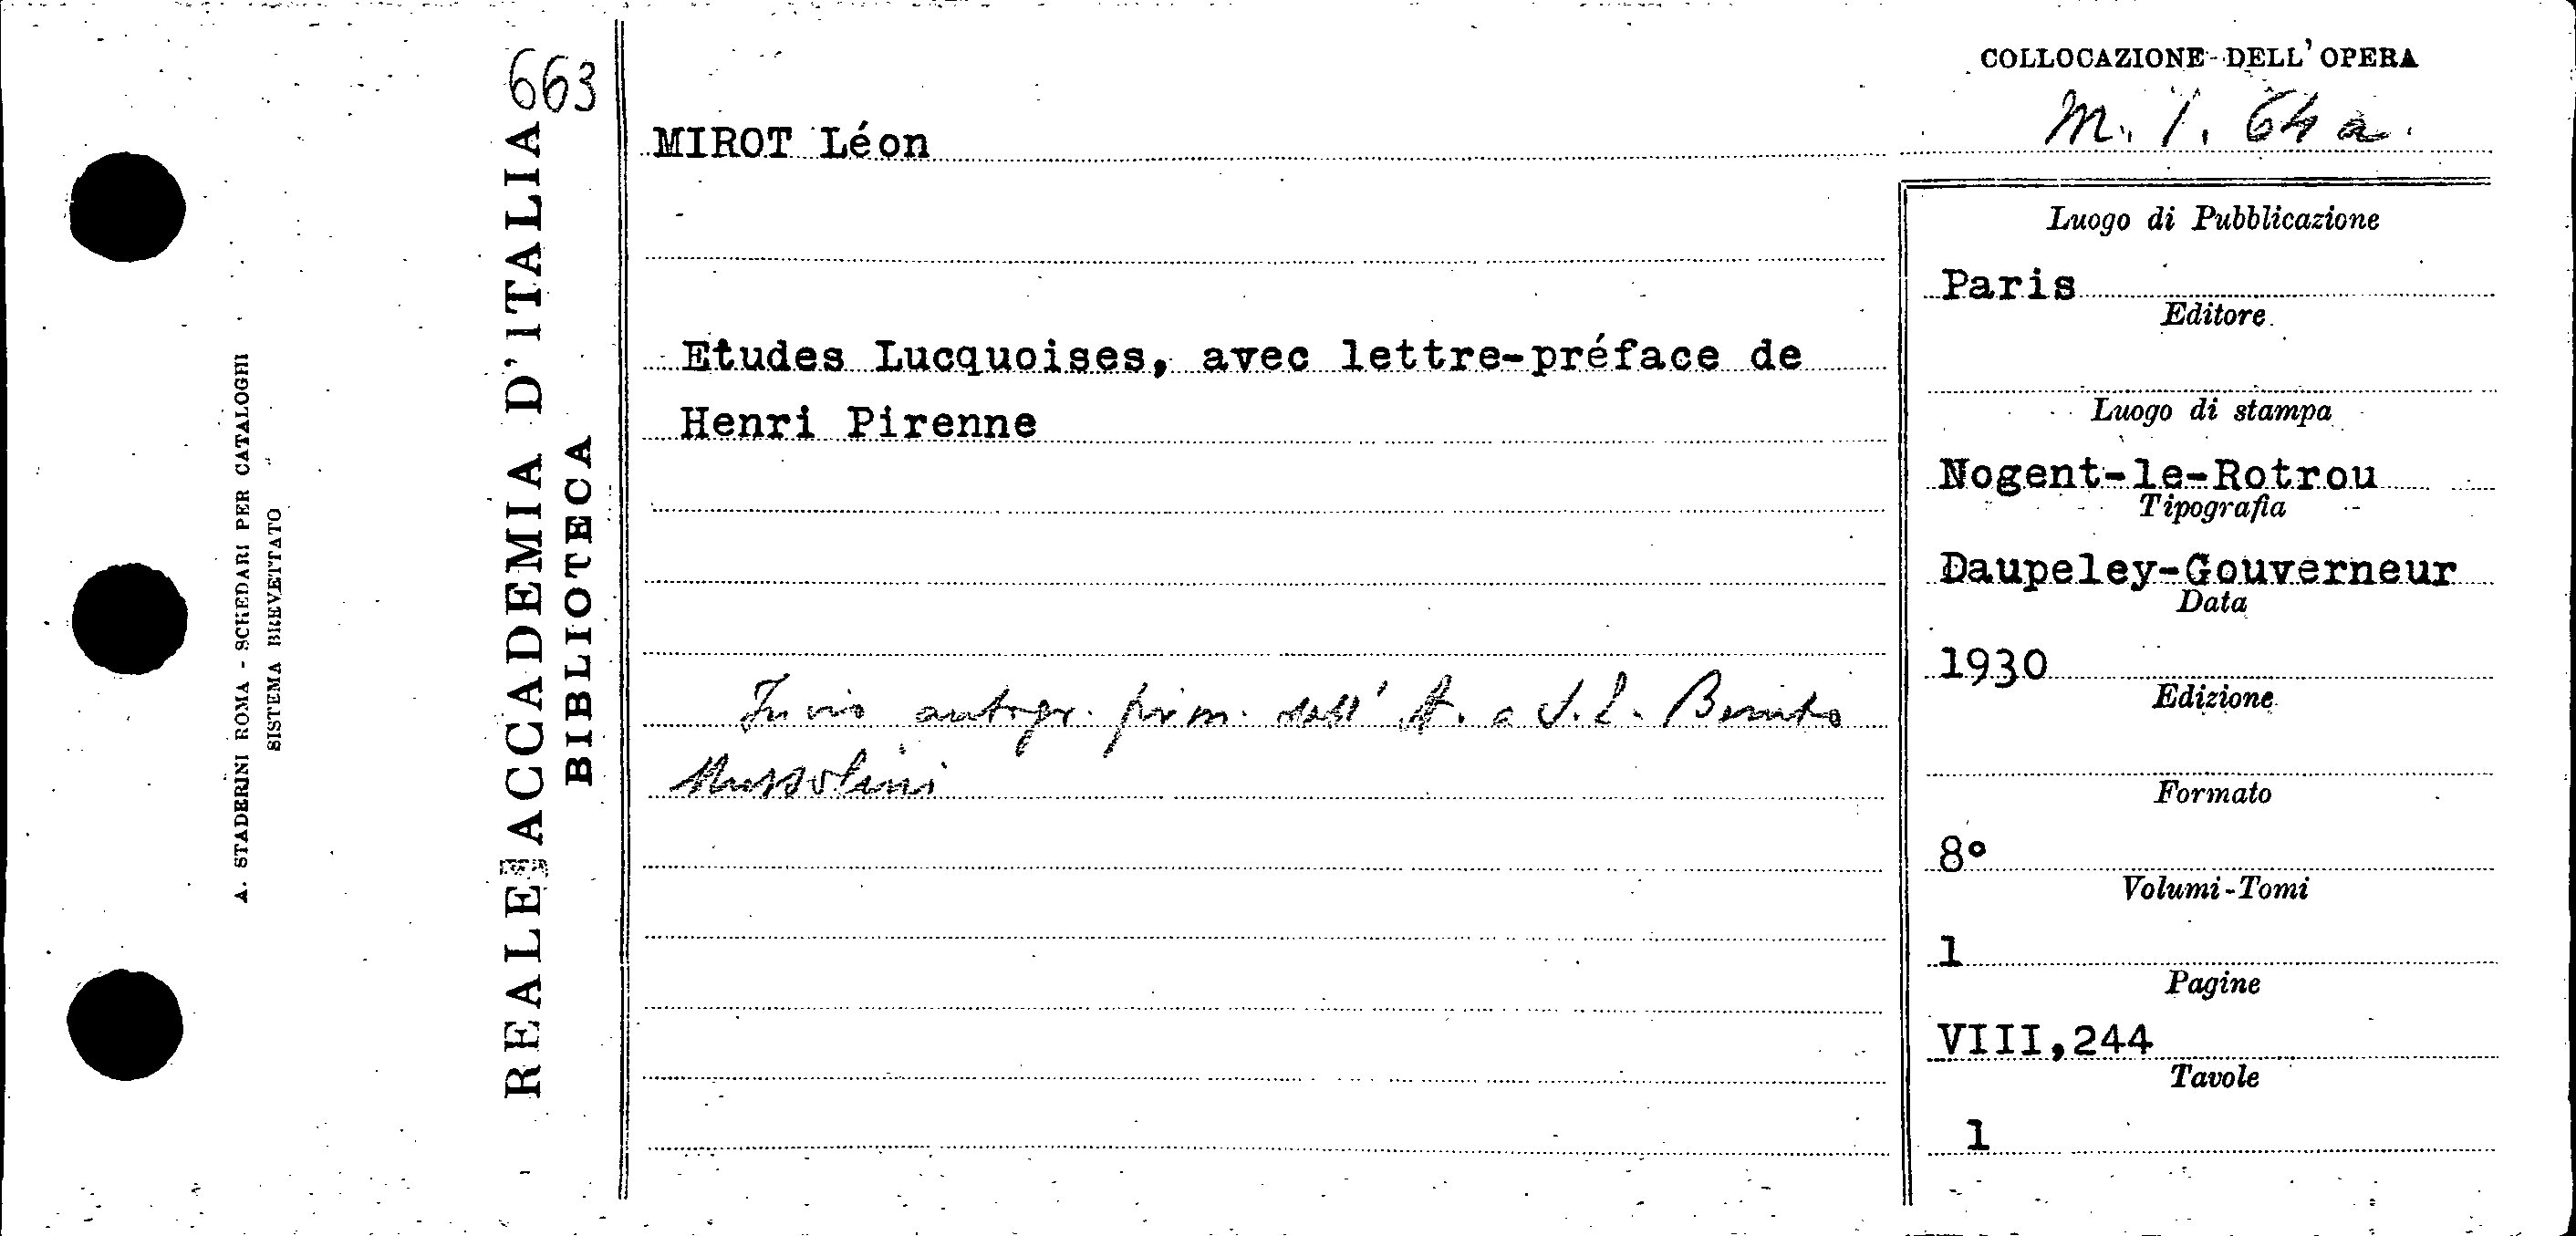 663
REALE ACCADEMIA D'ITALIA
BIBLIOTECA
A. STADERINI ROMA - SCHEDARI PER CATALOGHI
SISTEMA BREVETTATO
MIROT Léon
Etudes Lucquoises, avec lettre-préface de
Henri Pirenne
Invio autogr. firm. dell' A. a S.E. Benito
Mussolini
COLLOCAZIONE DELL'OPERA
M. 1. 64 a.
Luogo di Pubblicazione
Paris
Editore
Luogo di stampa
Nogent-le-Rotrou
Tipografia
Daupeley-Gouverneur
Data
1930
Edizione
Formato
8°
Volumi-Tomi
1
Pagine
VIII,244
Tavole
1